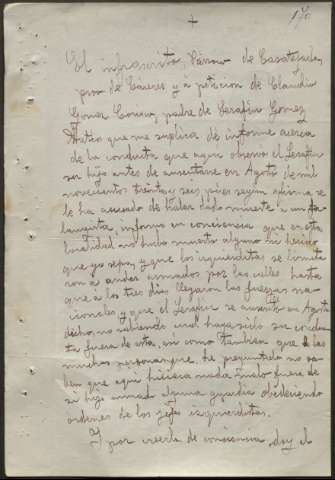 +
170
El infrascrito, Párroco de Casatejada,
prov de Cáceres y a petición de Claudio
Gomez padre de Serafín Gomez
que me suplica dé informe acerca
de la conducta que aquí observó el Serafín
su hijo antes de ausentarse en Agosto de mil
novecientos treinta y seis pues según afirma se
le ha acusado de haber dado muerte a un fa-
langista, informo en conciencia que en esta
localidad no hubo muerto alguno ni herido
que yo sepa, y que los izquierdistas se limita
ron a andar armados por las calles hasta
que a los tres días llegaron las fuerzas na-
cionales y que el Serafín se ausentó en Agosto
dicho, no sabiendo cual haya sido su conduc
ta fuera de esta, así como tambien que de las
muchas personas que he preguntado no sa-
ben que aquí hiciera nada malo fuera de
si hizo armado alguna guardia obedeciendo
ordenes de los jefes izquierdistas.
Y por creerlo de conciencia doy el